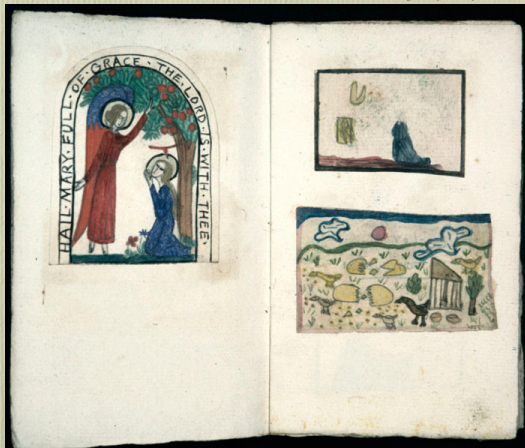 HAIL·MARY·FULL·OF·GRACE·THE·LORD·IS·WITH·THEE·